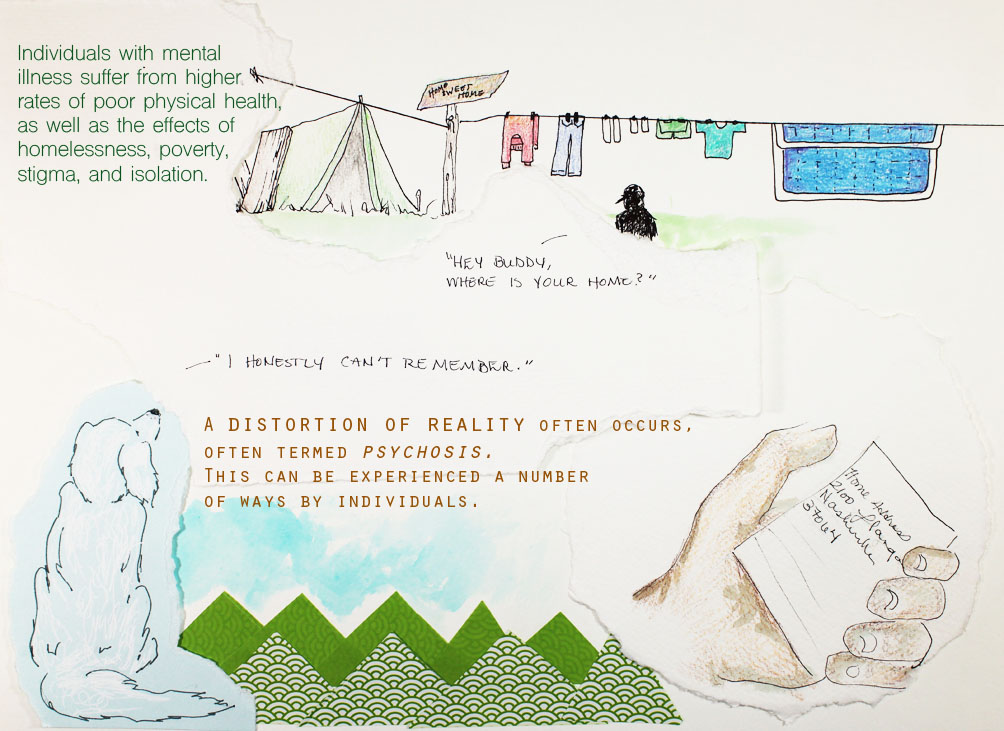 Individuals with mental
illness suffer from higher
rates of poor physical health,
as well as the effects of
homelessness, poverty,
stigma, and isolation.
HOME
SWEET
HOME
"HEY BUDDY,
WHERE IS YOUR HOME?"
"I HONESTLY CAN'T REMEMBER."
A DISTORTION OF REALITY OFTEN OCCURS,
OFTEN TERMED PSYCHOSIS.
THIS CAN BE EXPERIENCED A NUMBER
OF WAYS BY INDIVIDUALS.
Home Address
2100
Nashville
37064